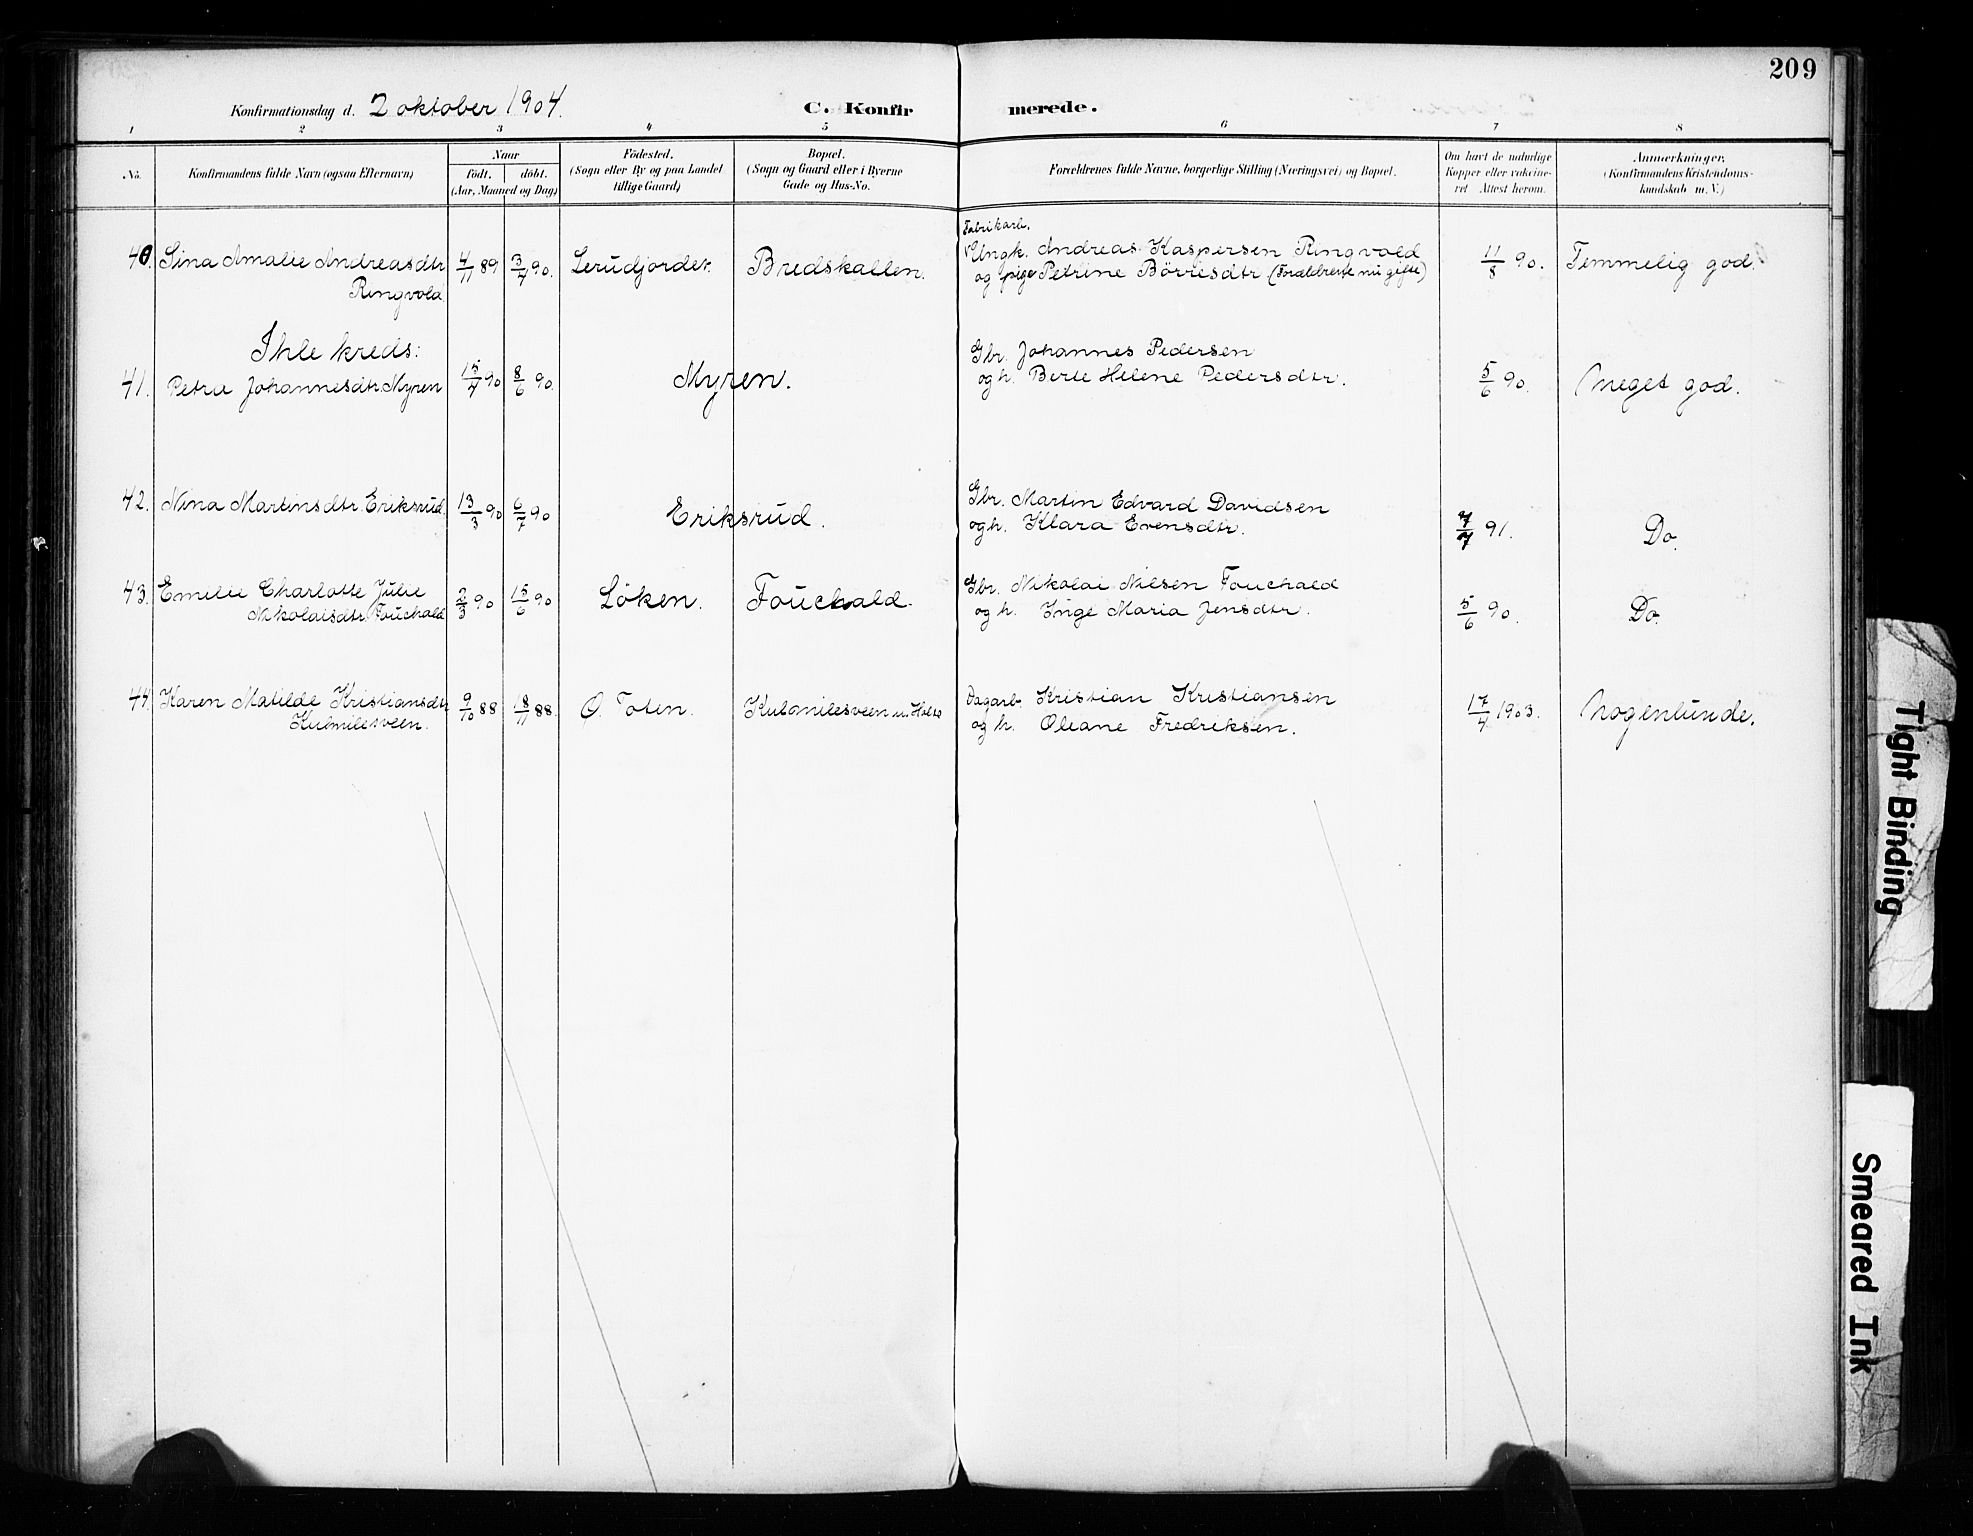 209
Konfirmationsdag d. 2 oktober 1904.
C. Konfirmerede.
1 2 3 4 5 6 7 8
No.
Konfirmandens fulde Navn (ogsaa Efternavn)
Naar
födt. döbt.
(Aar, Maaned og Dag)
Födested.
(Sogn eller By og paa Landet
tillige Gaard)
Bopæl.
(Sogn og Gaard eller i Byerne
Gade og Hus-No.
Forældrenes fulde Navne, borgerlige Stilling (Næringsvei) og Bopæl.
Om havt de naturlige
Kopper eller vakcine-
ret Attest herom.
Anmerkninger.
(Konfirmandens Kristendoms-
kundskab m. V.)
Fabrikarb.
40. Sina Amalie Andreasdtr 4/11 89 3/4 90. Lerudjordet. Bredskallen. Ungk. Andreas Kaspersen Ringvold 11/8 90. Temmelig god.
Ringvold og pige Petrine Börresdtr (Forældrene nu gifte)
Ihle kreds:
41. Petra Johannesdtr. Myren 15/4 90 8/6 90. Myren. Gbr. Johannes Pedersen 5/6 90. Meget god.
og h. Berte Helene Pedersdtr.
42. Nina Martinsdtr. Eriksrud. 13/3 90 6/7 90 Eriksrud. Gbr. Martin Edvard Davidsen
og h. Klara Evensdtr. 7/7 91. Do.
43. Emelie Charlotte Julie 2/3 90 15/6 90 Löken. Fouchald. Gbr. Nikolai Nilsen Fouchald 5/6 90. Do.
Nikolaisdtr. Fouchald og h. Inge Maria Jensdtr.
44. Karen Matilde Kristiansdtr 9/10 88 18/11 88. Ö. Toten. Kulmilesveen u. Holte Dagarb. Kristian Kristiansen 17/4 1903. Nogenlunde.
Kulmilesveen. og h. Oleane Fredriksen.
Tight Binding
Smeared Ink